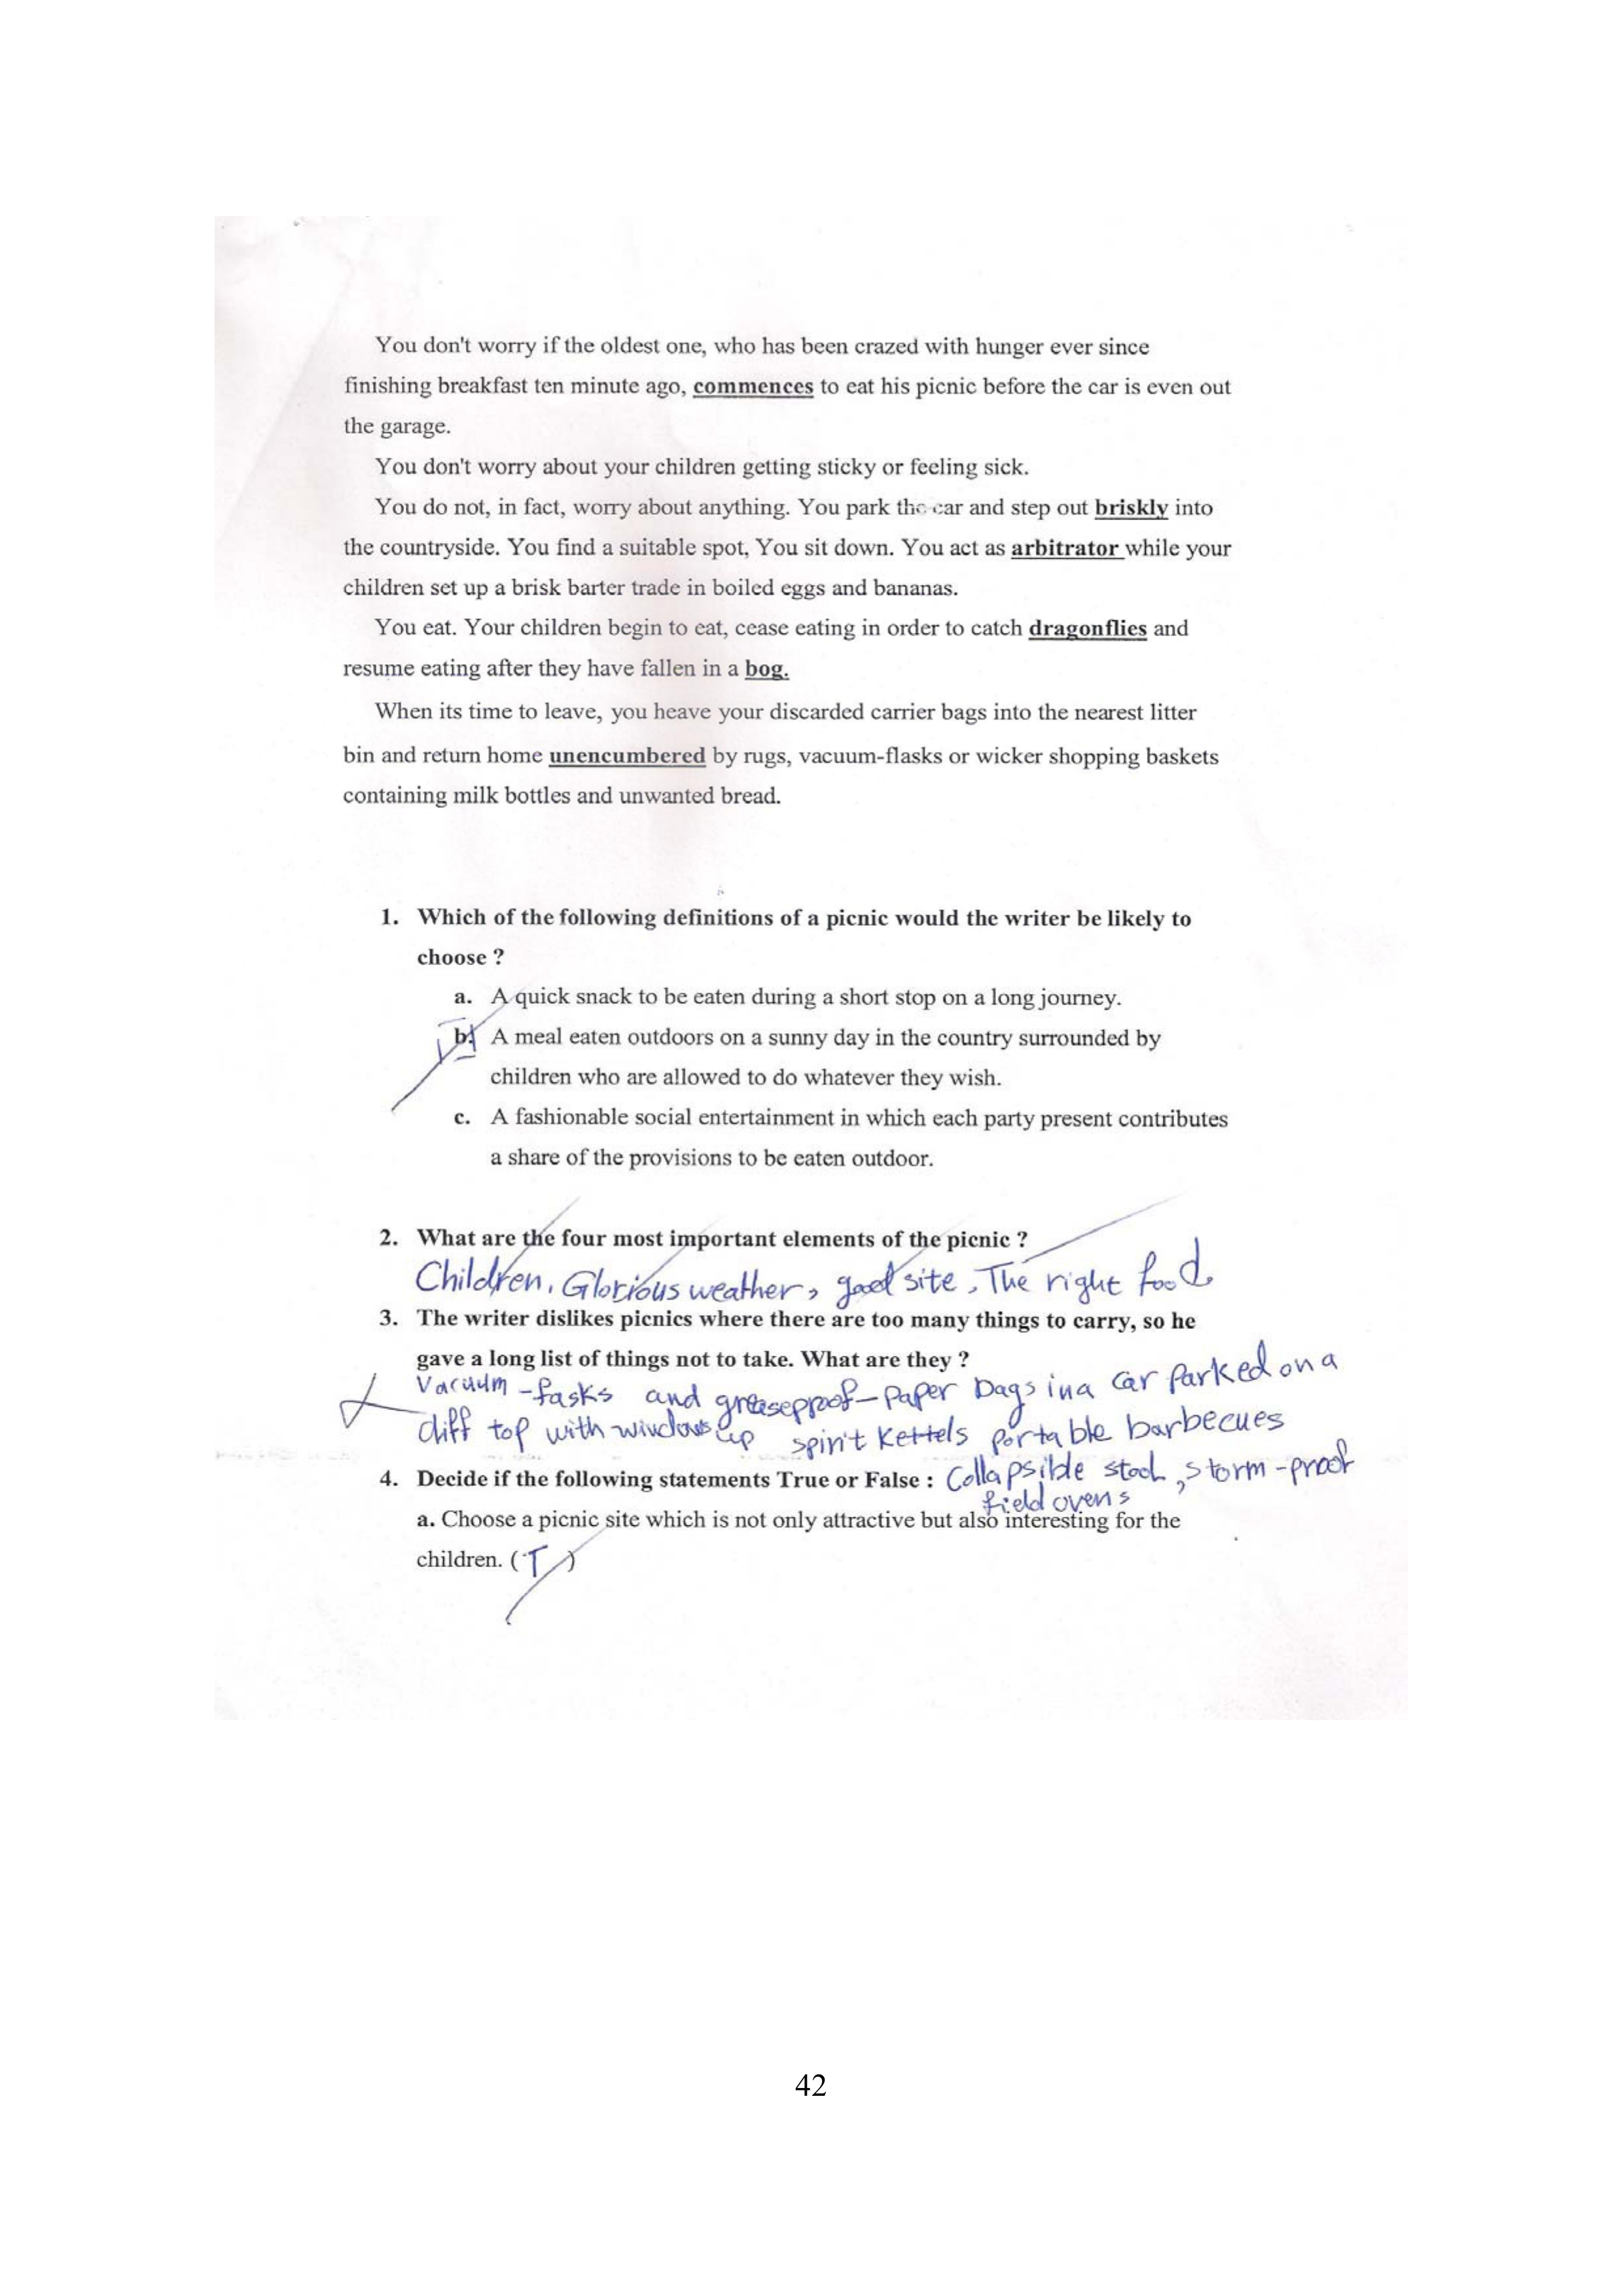 You don't worry if the oldest one, who has been crazed with hunger ever since
finishing breakfast ten minute ago, commences to eat his picnic before the car is even out
the garage.
You don't worry about your children getting sticky or feeling sick.
You do not, in fact, worry about anything. You park the car and step out briskly into
the countryside. You find a suitable spot, You sit down. You act as arbitrator while your
children set up a brisk barter trade in boiled eggs and bananas.
You eat. Your children begin to eat, cease eating in order to catch dragonflies and
resume eating after they have fallen in a bog.
When its time to leave, you heave your discarded carrier bags into the nearest litter
bin and return home unencumbered by rugs, vacuum-flasks or wicker shopping baskets
containing milk bottles and unwanted bread.
1. Which of the following definitions of a picnic would the writer be likely to
choose ?
a. A quick snack to be eaten during a short stop on a long journey.
b. A meal eaten outdoors on a sunny day in the country surrounded by
children who are allowed to do whatever they wish.
c. A fashionable social entertainment in which each party present contributes
a share of the provisions to be eaten outdoor.
2. What are the four most important elements of the picnic ?
Children, Glorious weather, good site, The right food
3. The writer dislikes picnics where there are too many things to carry, so he
gave a long list of things not to take. What are they ?
Vacuum-fasks and greaseproof-paper bags in a car parked on a
cliff top with windows up spirit kettels portable barbecues
4. Decide if the following statements True or False : Collapsible stool, storm-proof
field ovens
a. Choose a picnic site which is not only attractive but also interesting for the
children. ( T )
42